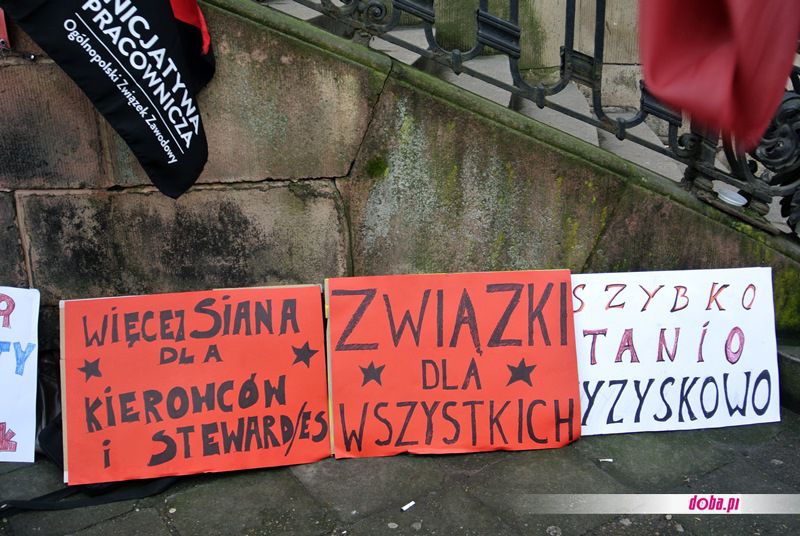 INICJATYWA
PRACOWNICZA
Ogólnopolski Związek Zawodowy
WIĘCEJ SIANA
DLA
KIEROWCÓW
i STEWARD/ES
ZWIĄZKI
DLA
WSZYSTKICH
SZYBKO
TANIO
WYZYSKOWO
doba.pl